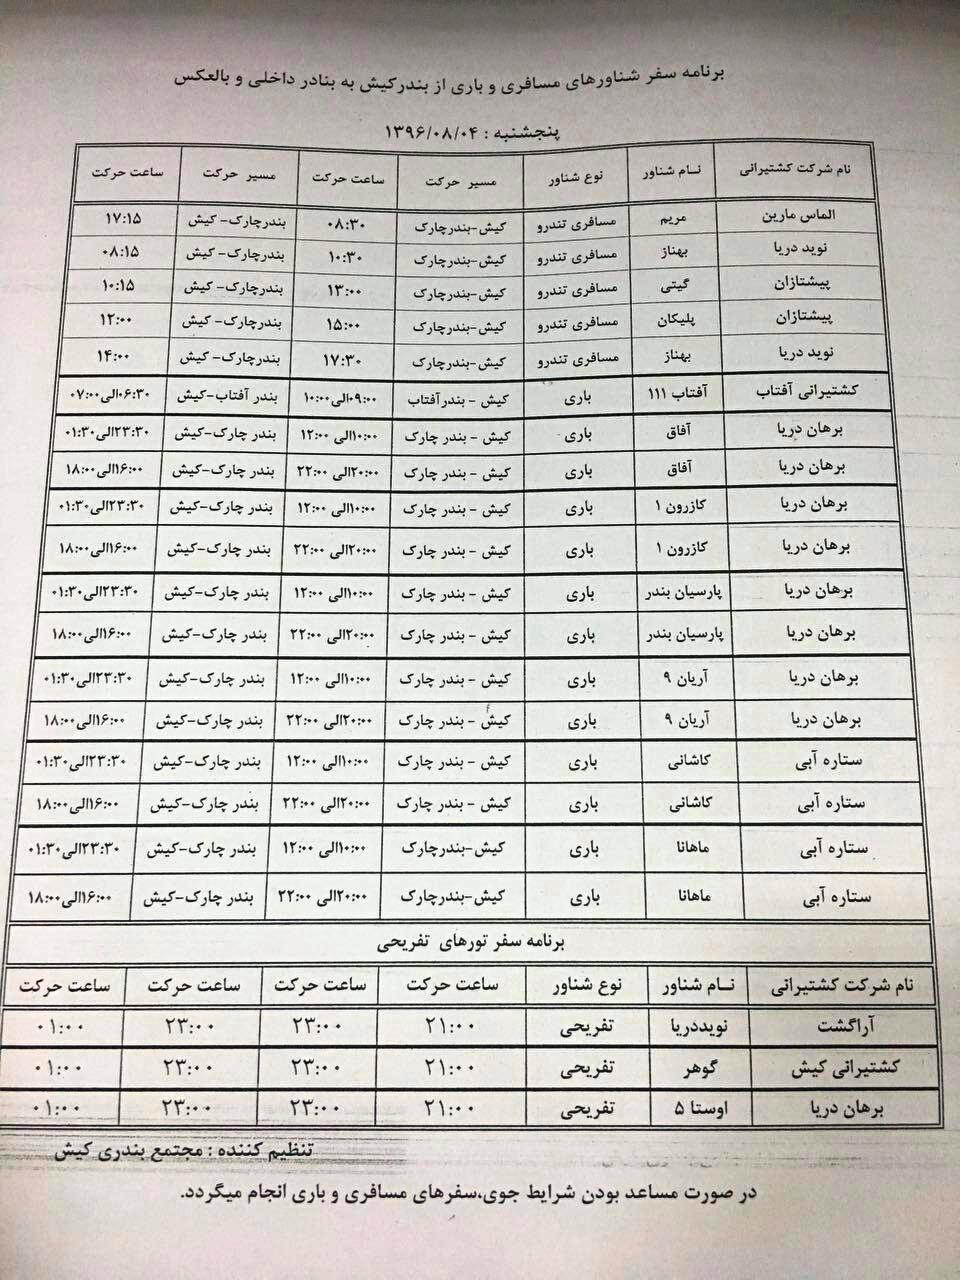 برنامه سفر شناورهای مسافری و باری از بندرکیش به بنادر داخلی و بالعکس
پنجشنبه : ۱۳۹۶/۰۸/۰۴
نام شرکت کشتیرانی نــام شناور نوع شناور مسیر حرکت ساعت حرکت مسیر حرکت ساعت حرکت
الماس مارین مریم مسافری تندرو کیش-بندرچارک ۰۸:۳۰ بندرچارک- کیش ۱۷:۱۵
نوید دریا بهناز مسافری تندرو کیش-بندرچارک ۱۰:۳۰ بندرچارک- کیش ۰۸:۱۵
پیشتازان گیتی مسافری تندرو کیش-بندرچارک ۱۳:۰۰ بندرچارک- کیش ۱۰:۱۵
پیشتازان پلیکان مسافری تندرو کیش-بندرچارک ۱۵:۰۰ بندرچارک- کیش ۱۲:۰۰
نوید دریا بهناز مسافری تندرو کیش-بندرچارک ۱۷:۳۰ بندرچارک- کیش ۱۴:۰۰
کشتیرانی آفتاب آفتاب ۱۱۱ باری کیش - بندرآفتاب ۰۹:۰۰الی۱۰:۰۰ بندر آفتاب-کیش ۰۶:۳۰الی۰۷:۰۰
برهان دریا آفاق باری کیش - بندر چارک ۱۰:۰۰الی ۱۲:۰۰ بندر چارک-کیش ۲۳:۳۰الی۰۱:۳۰
برهان دریا آفاق باری کیش - بندر چارک ۲۰:۰۰الی ۲۲:۰۰ بندر چارک-کیش ۱۶:۰۰الی۱۸:۰۰
برهان دریا کازرون ۱ باری کیش - بندر چارک ۱۰:۰۰الی ۱۲:۰۰ بندر چارک-کیش ۲۳:۳۰الی۰۱:۳۰
برهان دریا کازرون ۱ باری کیش - بندر چارک ۲۰:۰۰الی ۲۲:۰۰ بندر چارک-کیش ۱۶:۰۰الی۱۸:۰۰
برهان دریا پارسیان بندر باری کیش - بندر چارک ۱۰:۰۰الی ۱۲:۰۰ بندر چارک-کیش ۲۳:۳۰الی۰۱:۳۰
برهان دریا پارسیان بندر باری کیش - بندر چارک ۲۰:۰۰الی ۲۲:۰۰ بندر چارک-کیش ۱۶:۰۰الی۱۸:۰۰
برهان دریا آریان ۹ باری کیش - بندر چارک ۱۰:۰۰الی ۱۲:۰۰ بندر چارک-کیش ۲۳:۳۰الی۰۱:۳۰
برهان دریا آریان ۹ باری کیش - بندر چارک ۲۰:۰۰الی ۲۲:۰۰ بندر چارک-کیش ۱۶:۰۰الی۱۸:۰۰
ستاره آبی کاشانی باری کیش - بندر چارک ۱۰:۰۰الی ۱۲:۰۰ بندر چارک-کیش ۲۳:۳۰الی۰۱:۳۰
ستاره آبی کاشانی باری کیش - بندر چارک ۲۰:۰۰الی ۲۲:۰۰ بندر چارک-کیش ۱۶:۰۰الی۱۸:۰۰
ستاره آبی ماهانا باری کیش-بندرچارک ۱۰:۰۰الی ۱۲:۰۰ بندر چارک-کیش ۲۳:۳۰الی۰۱:۳۰
ستاره آبی ماهانا باری کیش-بندرچارک ۲۰:۰۰الی ۲۲:۰۰ بندر چارک-کیش ۱۶:۰۰الی۱۸:۰۰
برنامه سفر تورهای تفریحی
نام شرکت کشتیرانی نــام شناور نوع شناور ساعت حرکت ساعت حرکت ساعت حرکت ساعت حرکت
آراگشت نویددریا تفریحی ۲۱:۰۰ ۲۳:۰۰ ۲۳:۰۰ ۰۱:۰۰
کشتیرانی کیش گوهر تفریحی ۲۱:۰۰ ۲۳:۰۰ ۲۳:۰۰ ۰۱:۰۰
برهان دریا اوستا ۵ تفریحی ۲۱:۰۰ ۲۳:۰۰ ۲۳:۰۰ ۰۱:۰۰
تنظیم کننده : مجتمع بندری کیش
در صورت مساعد بودن شرایط جوی،سفرهای مسافری و باری انجام میگردد.